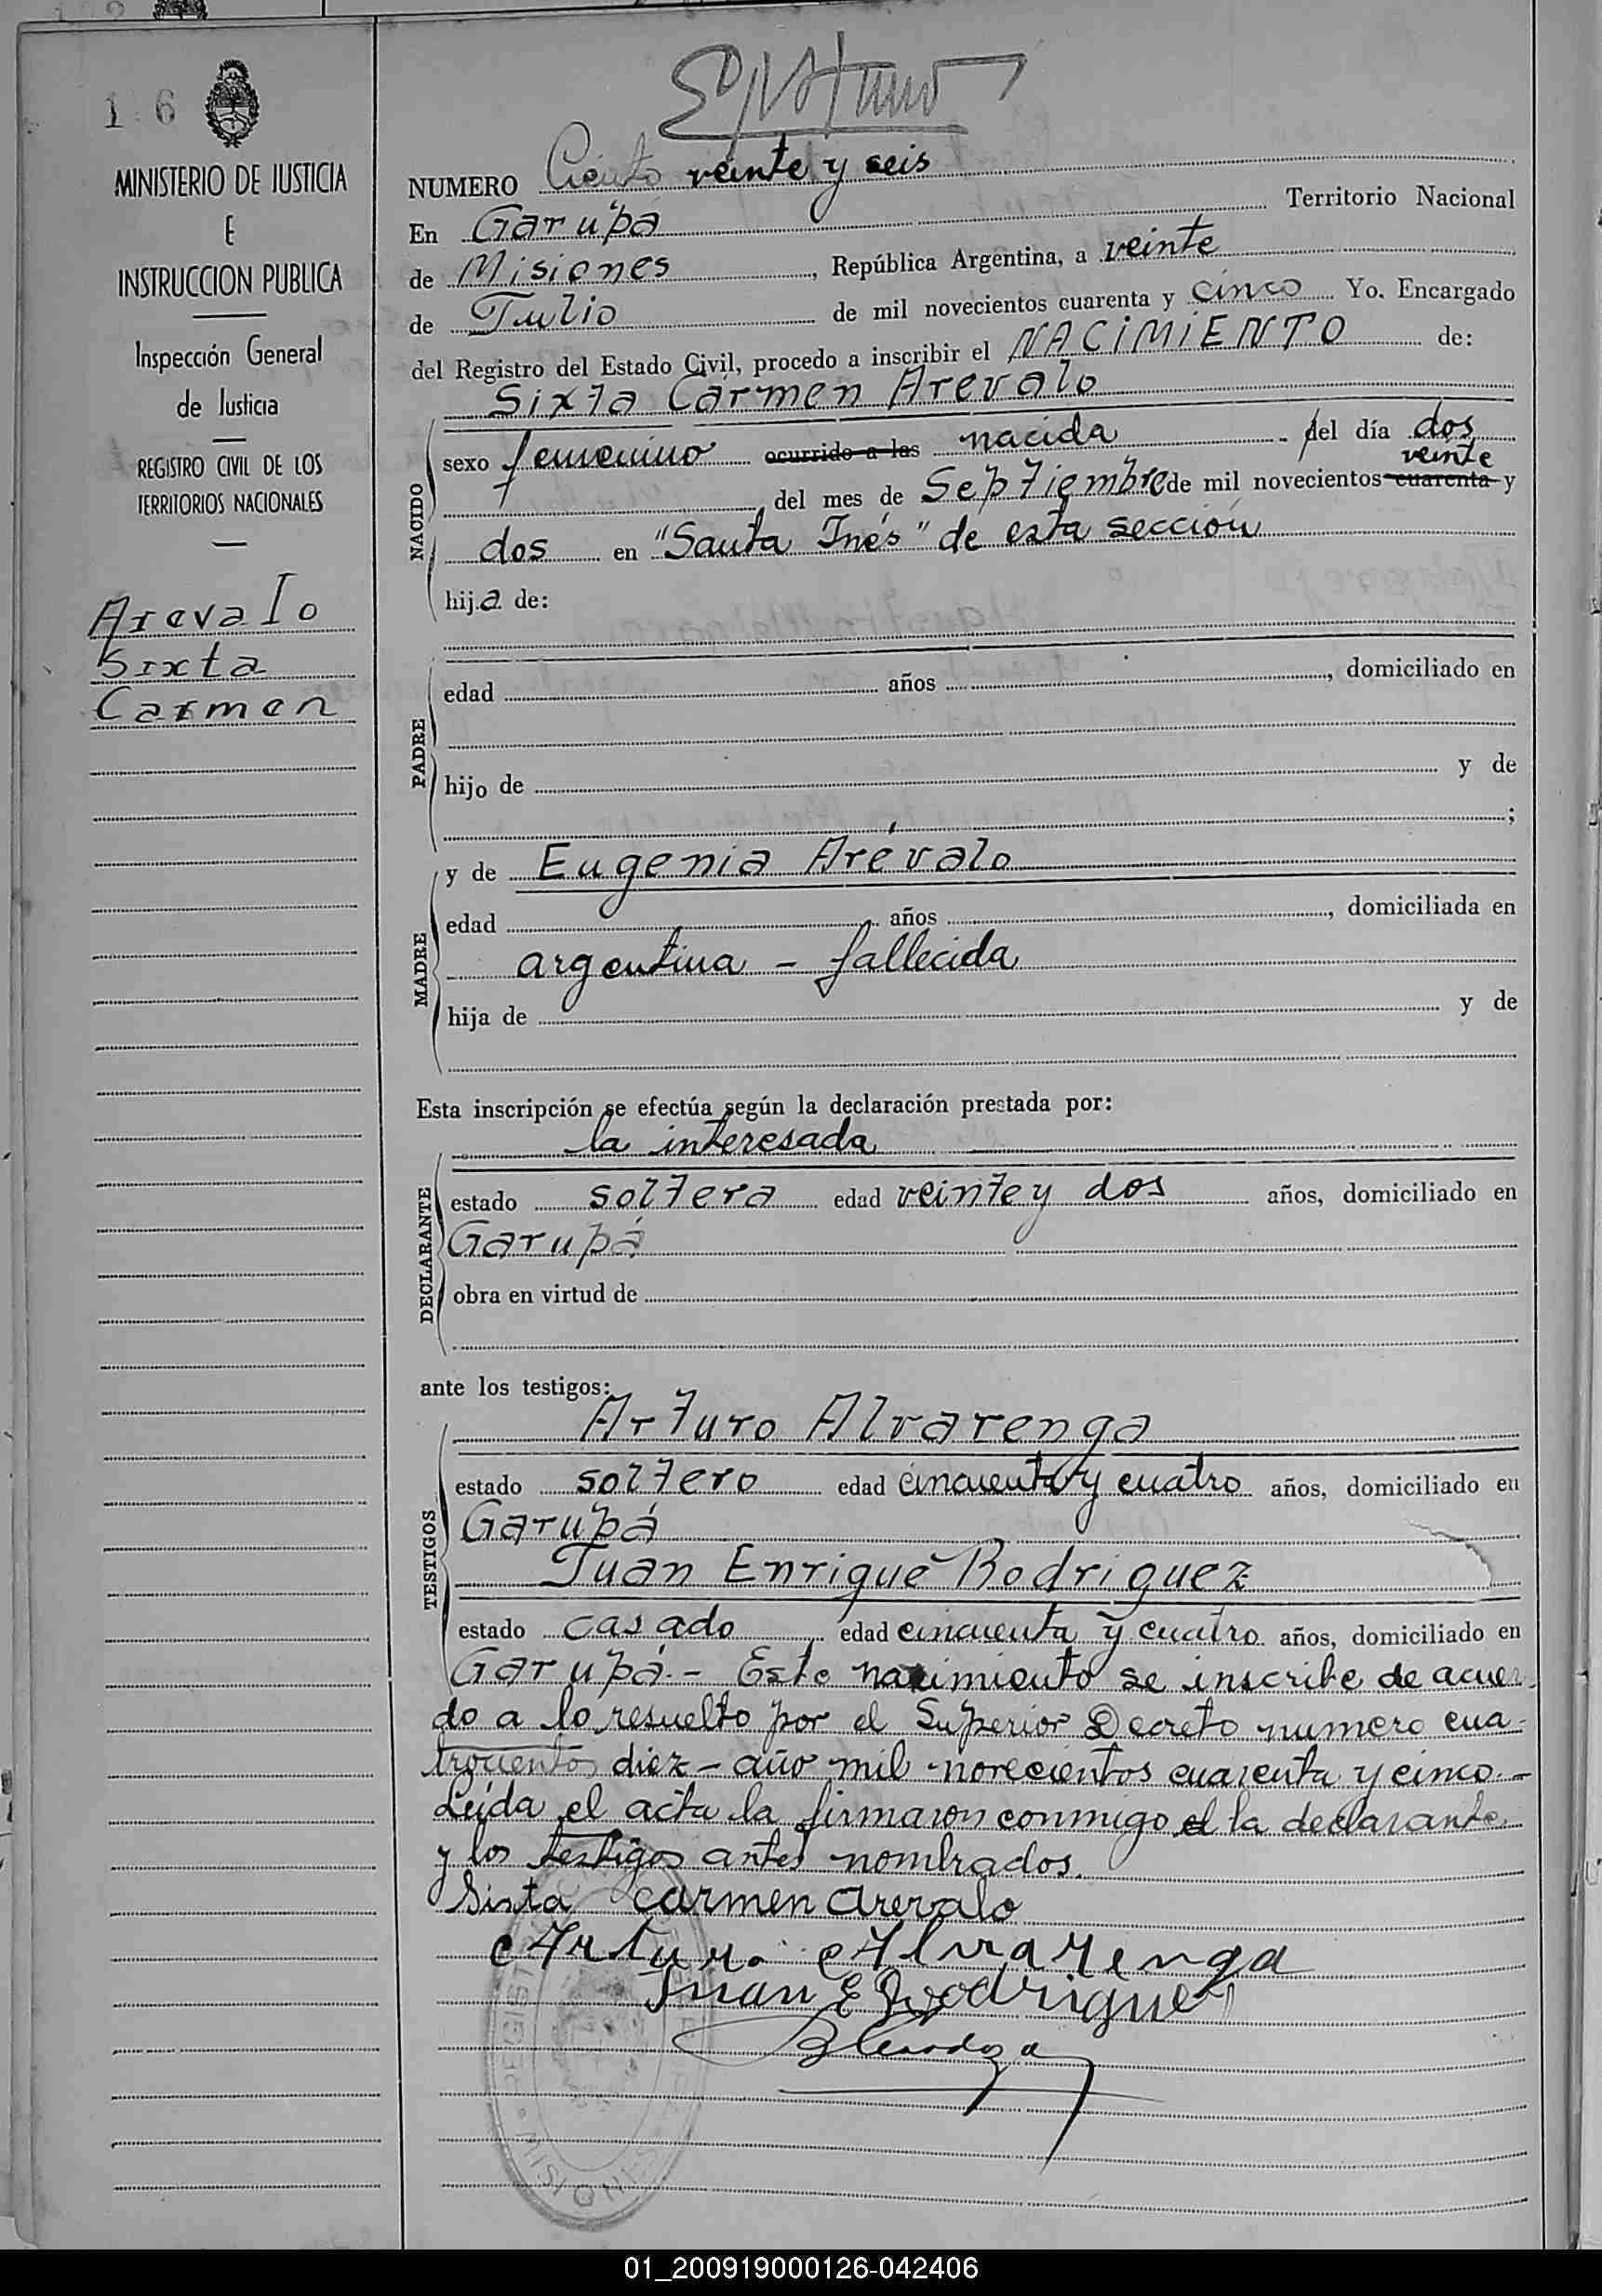 126
MINISTERIO DE JUSTICIA
E
INSTRUCCION PUBLICA
Inspección General
de Justicia
REGISTRO CIVIL DE LOS
TERRITORIOS NACIONALES
Arevalo
Sixta
Carmen
NUMERO Ciento veinte y seis
En Garupá Territorio Nacional
de Misiones, República Argentina, a veinte
de Julio de mil novecientos cuarenta y cinco Yo. Encargado
del Registro del Estado Civil, procedo a inscribir el NACIMIENTO de:
Sixta Carmen Arevalo
NACIDO
sexo femenino ocurrido a las nacida del día dos
veinte
del mes de Septiembre de mil novecientos cuarenta y
dos en "Santa Inés" de esta sección
hija de:
PADRE
edad años , domiciliado en
hijo de y de
;
y de Eugenia Arévalo
MADRE
edad años , domiciliada en
argentina - fallecida
hija de y de
Esta inscripción se efectúa según la declaración prestada por:
la interesada
DECLARANTE
estado soltera edad veinte y dos años, domiciliado en
Garupá
obra en virtud de
ante los testigos:
Arturo Alvarenga
TESTIGOS
estado soltero edad cincuenta y cuatro años, domiciliado en
Garupá
Juan Enrique Rodriguez
estado casado edad cincuenta y cuatro años, domiciliado en
Garupá.- Este nacimiento se inscribe de acuer-
do a lo resuelto por el Superior Decreto numero cua-
trocientos diez - año mil novecientos cuarenta y cinco.-
Leída el acta la firmaron conmigo el la declarante
y los testigos antes nombrados.
Sixta Carmen Arevalo
Arturo Alvarenga
Juan E Rodriguez
MISIONES
01_200919000126-042406